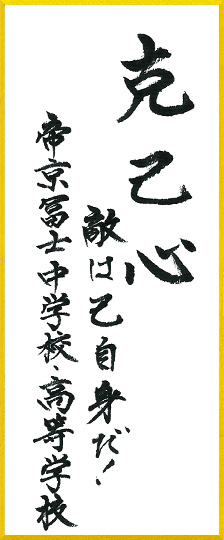 克己心
敵は己自身だ!
帝京冨士中学校・高等学校